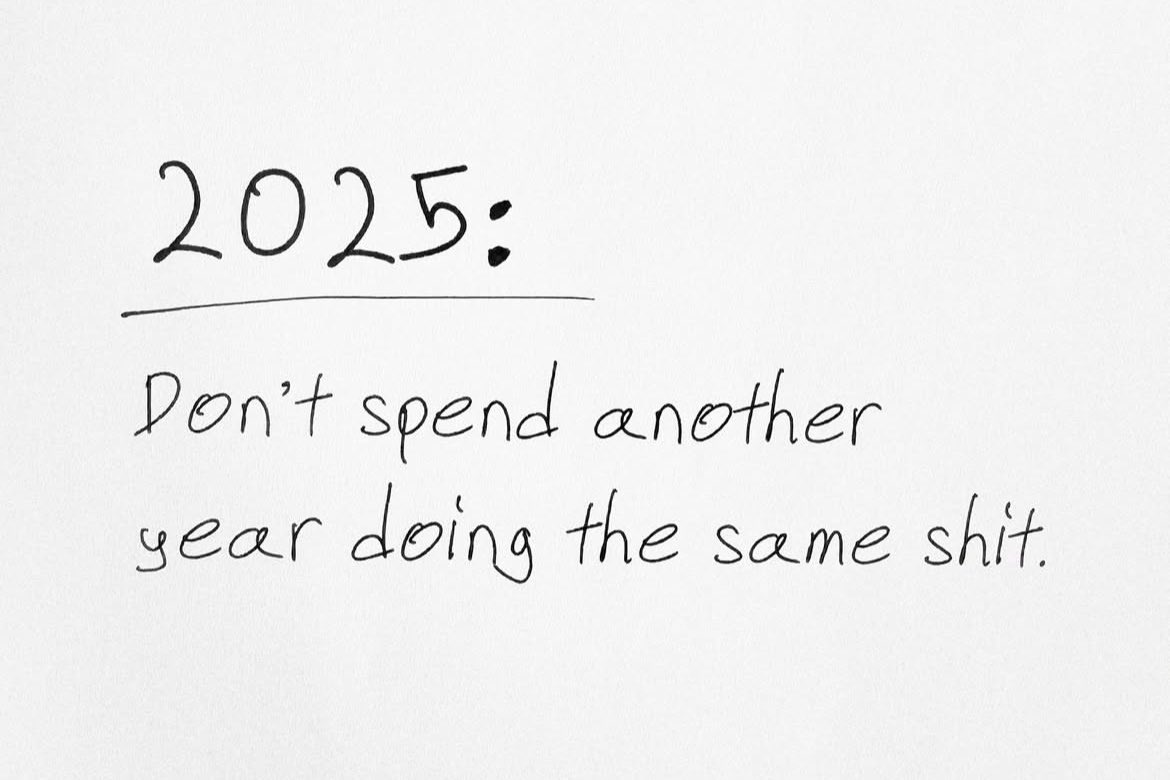 2025:
Don't spend another
year doing the same shit.